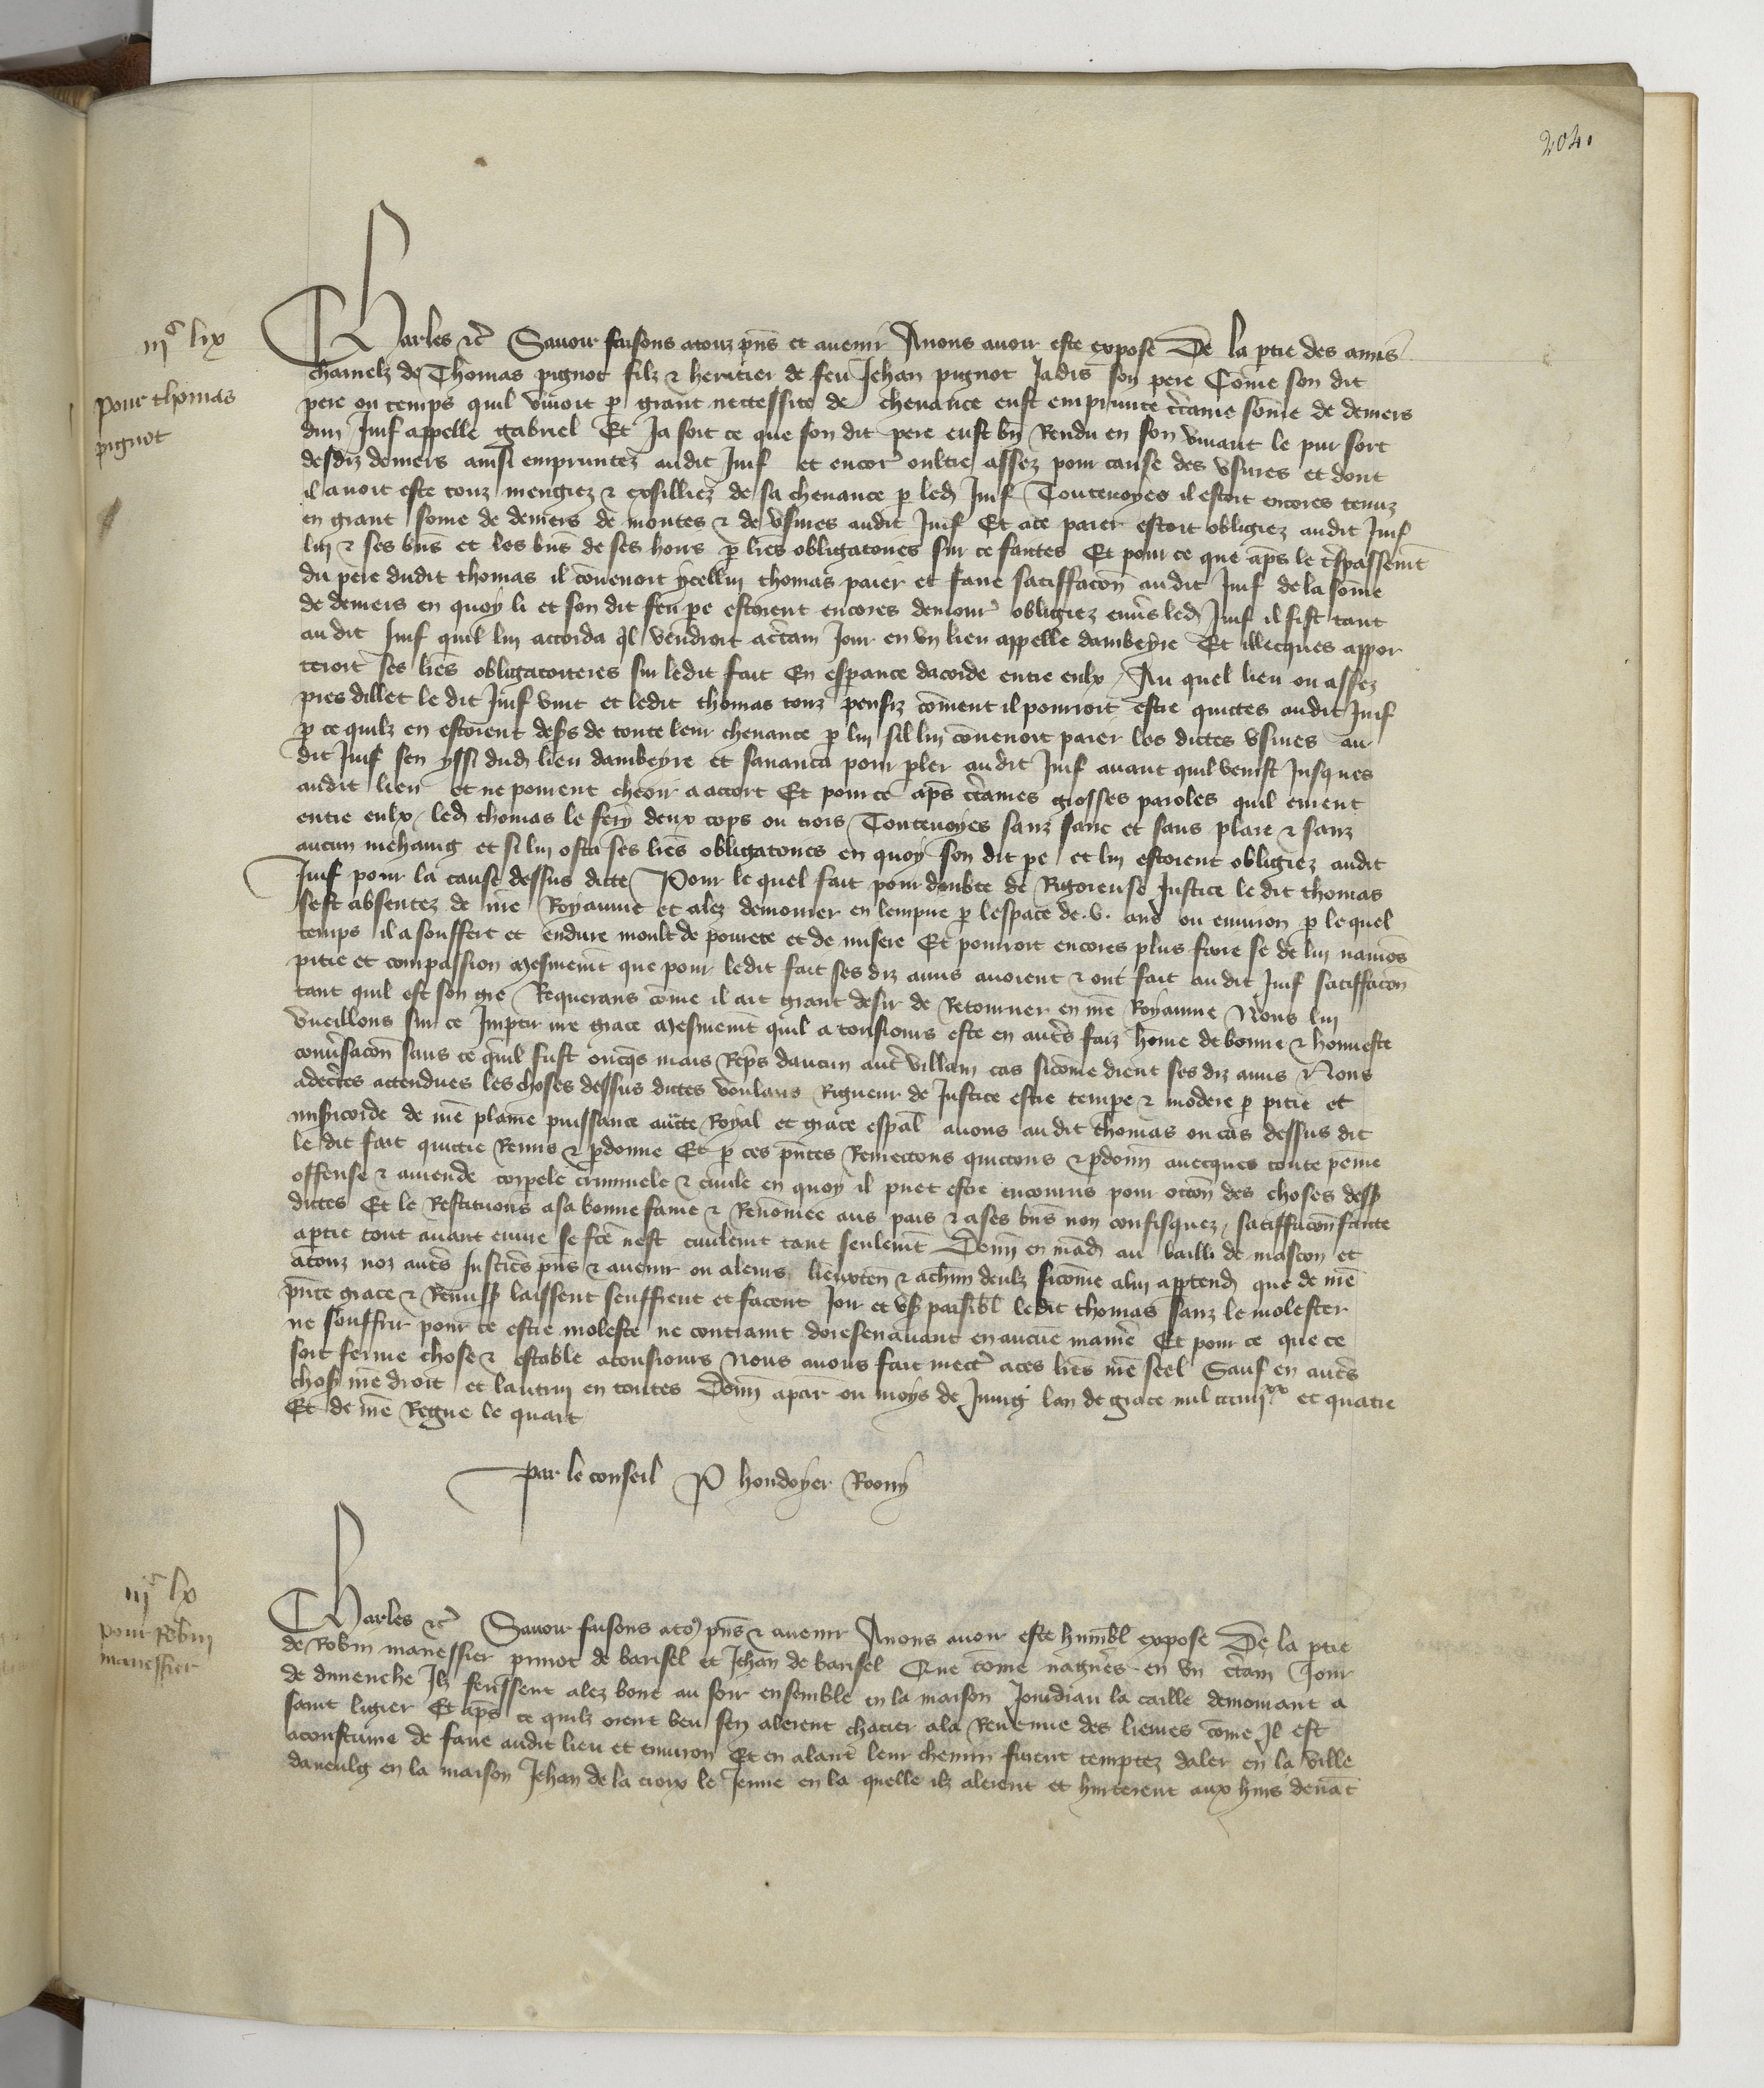 204.
iijᶜ lix
pour thomas
pignot
Charles etc̃ Sauoir faisons a touz pñs et auenir Nous auoir este expose De la ptie des amis
charnelz de Thomas pignot filz ⁊ heritier de feu Jehan pignot Jadis son pere Com̃e son dit
pere ou temps quil viuoit p grant neccessite de cheuance eust emprunte c̃taine som̃e de deniers
dun Juif appelle gabriel Et Ja soit ce que son dit pere eust bñ Rendu en son viuant le pur sort
desdiz deniers ainsi empruntez audit Juif et encor̃ oultre assez pour cause des vsures et dont
il auoit este touz mengiez ⁊ exsilliez de sa cheuance p led Juif Toutevoyes il estoit encores tenuz
en grant some de deniers de montes ⁊ de vsures audit Juif Et a ce paier estoit obligiez audit Juif
lui ⁊ ses bñs et les bñs de ses hoirs p lr̃es obligatoires sur ce faictes Et pour ce que ap̃s le t̃spassem̃t
du pere dudit thomas il cõuenoit ycellui thomas paier et faire satiffacõn audit Juif de la som̃e
de deniers en quoy li et son dit feu pe estoient encores demour̃ obligiez enu̾s led Juif il fist tant
audit Juif quil lui accorda ql̃ vendroit a c̃tain Jour en vn lieu appelle dambeyre Et illecques appor
teroit ses lr̃es obligatoireres sur ledit fait En espance dacorde entre eulx Au quel lieu ou assez
pres dillec le dit Juif vint et ledit thomas touz pensiz com̃ent il pourroit estre quictes audit Juif
p ce quilz en estoient des̾s de toute leur cheuance p lui sil lui cõuenoit paier les dictes vsures au
dit Juif sen yssi dud lieu dambeyre et sauanca pour pler audit Juif auant quil venist Jusques
audit lieu et ne porrent cheoir a accort Et pour ce ap̃s c̃taines grosses paroles quil eurent
entre eulx led thomas le fery deux cops ou trois Toutevoyes sanz sanc et sans plaie ⁊ sanz
aucun mehaing et si lui osta ses lr̃es obligatoires en quoy son dit pe et lui estoient obligiez audit
Juif pour la cause dessus dicte Pour le quel fait pour doubte de Rigoreuse Justice le dit thomas
sest absentez de nr̃e Royaume et alez demourer en lempire p lespace de .v. ans ou enuiron p le quel
temps il a souffert et endure moult de pourete et de misere Et pourroit encores plus faire se de lui nauiõs
pitie et compassion mesmem̃t que pour ledit fait ses diz amis auoient ⁊ ont fait audit Juif satiffacõn
tant quil est son gre Requerans com̃e il ait grant desir de Retourner en nr̃e Royaume Nous lui
vueillons sur ce Imptir nr̃e grace mesmem̃t quil a tousiours este en aut̃s faiz hõme de bonne ⁊ honneste
conu̾sacõn sans ce quil fust oncqs mais Rep̃s daucun aut̃ villain cas sicom̃e dient ses diz amis Nous
adec̃tes attendues les choses dessus dictes voulans Rigueur de Justice estre tempe ⁊ modere p pitie et
miscorde de nr̃e plaine puissance aucte Royal et grace espãl auons audit thomas ou cas dessus dit
le dit fait quicte Remis ⁊ pdonne Et p ces pñtes Remectons quictons ⁊ pdonñ auecques toute peine
offense ⁊ amende corpele criminele ⁊ ciuile en quoy il puet estre encourus pour occõn des choses dess̾
dictes Et le Restituons a sa bonne fame ⁊ Renõmee aus pais ⁊ a ses bñs non confisquez, satiffacõn faicte
a ptie tout auant euure se fc̃e nest ciuilem̃t tant seulem̃t Donñ en mãd au bailli de mascon et
a touz noz aut̃s Justic̃s pñs ⁊ auenir ou a leurs lieuxteñ ⁊ a chũn deulz sicom̃e a lui apptend que de nr̃e
pñte grace ⁊ Remiss̾ laissent seuffrent et facent Joir et vs̾ paisibl̃ ledit thomas sanz le molester
ne souffrir pour ce estre moleste ne contraint doresenauant en aucũe manie̾ Et pour ce que ce
soit ferme chose ⁊ estable a tousiours Nous auons fait mectr̃ a ces lr̃es nr̃e seel Sauf en aut̃s
chos̾ nr̃e droit et lautrui en toutes Donñ a par̃ ou moys de Juing lan de grace mil ccciiijˣˣ et quatre
Et de nr̃e Regne le quart
Par le conseil P hondoyer Rony
iijᶜ lx
pour Robin
manessier
Charles etc̃ Sauoir faisons a to9 pñs ⁊ auenir Nous auoir este humbl̃ expose De la ptie
de Robin manessier prinot de barisel et Jehan de barisel Que com̃e nague̾s en vn c̃tain Jour
de dimenche Ilz feussent alez boire au soir ensemble en la maison Jourdian la caille demourant a
saint ligier Et ap̃s ce quilz orent beu sen alerent chacier a la Reuenue des lieures com̃e Il est
acoustume de faire audit lieu et enuiron Et en alant leur chemin furent temptez daler en la ville
daneulg en la maison Jehan de la croix le Jenne en la quelle ilz alerent et hurterent aux huis deuãt